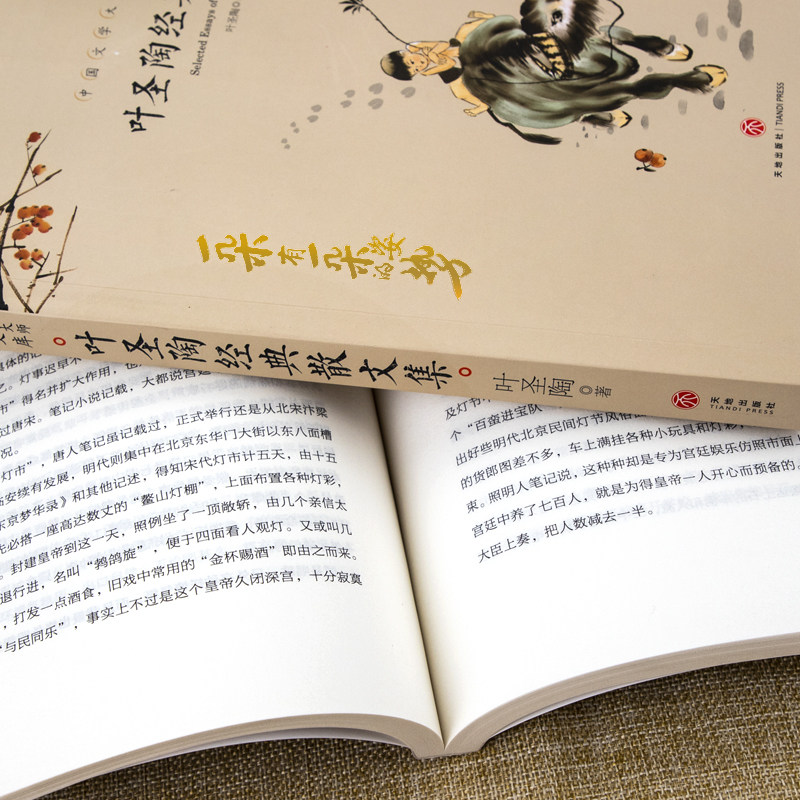 中国文学大
叶圣陶经
Selected Essays of
叶圣陶
天地出版社 | TIANDI PRESS
一朵有一朵的姿势
大师
库
叶圣陶经典散文集
叶圣陶 著
天地出版社
TIANDI PRESS
具体的记
。灯事迟早不
市”得名并扩大作用，
过唐宋。笔记小说记载，大都说宫
况。
灯市”，唐人笔记虽记载过，正式举行还是从北宋汴梁
临安续有发展，明代则集中在北京东华门大街以东八面槽
东京梦华录》和其他记述，得知宋代灯市计五天，由十五
先必搭一座高达数丈的“鳌山灯棚”，上面布置各种灯彩，
。封建皇帝到这一天，照例坐了一顶敞轿，由几个亲信太
退行进，名叫“鹁鸽旋”，便于四面看人观灯。又或叫几
，打发一点酒食，旧戏中常用的“金杯赐酒”即由之而来。
“与民同乐”，事实上不过是这个皇帝久闭深宫，十分寂寞
及灯节
个“百蛮进宝队
出好些明代北京民间灯节风俗
的货郎图差不多，车上满挂各种小玩具和灯彩，
束。照明人笔记说，这种种却是专为宫廷娱乐仿照市面上
宫廷中养了七百人，就是为得皇帝一人开心而预备的。
大臣上奏，把人数减去一半。